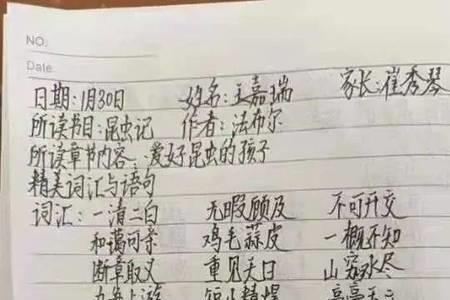 NO.
Date
日期:1月30日 姓名:王嘉瑞 家长:崔秀琴
所读书目:昆虫记 作者:法布尔
所读章节内容:爱好昆虫的孩子
精美词汇与语句
词汇:一清二白 无暇顾及 不可开交
和蔼可亲 鸡毛蒜皮 一概不知
断章取义 重见天日 山穷水尽
力争上游 短小精悍